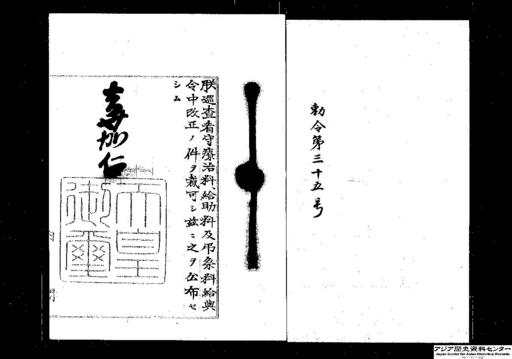 勅令第三十五号
朕巡査看守療治料、給助料及弔祭料給與
令中改正ノ件ヲ裁可シ茲ニ之ヲ公布セ
シム
嘉仁
天皇
御璽
アジア歴史資料センター
Japan Center for Asian Historical Records